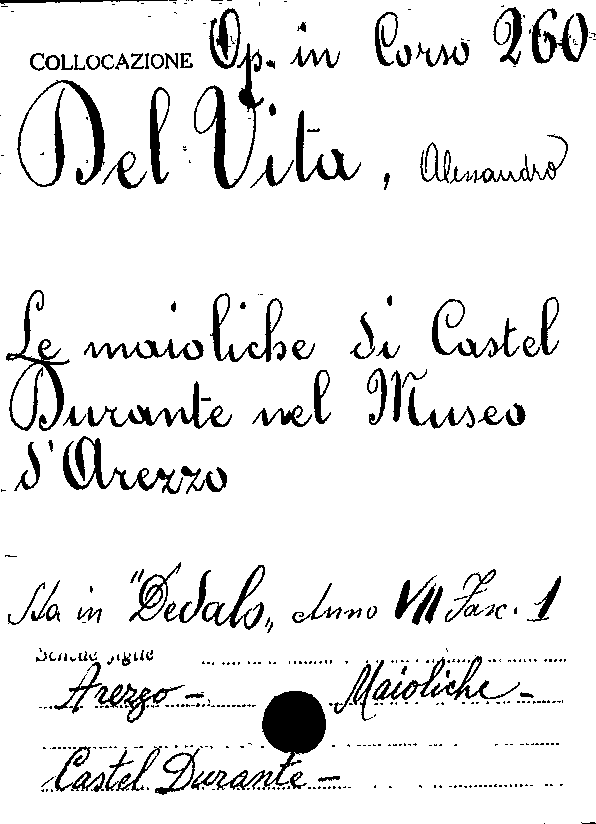 COLLOCAZIONE Op. in Corso 260
Del Vita, Alessandro
Le maioliche di Castel
Durante nel Museo
d'Arezzo
Sta in "Dedalo„ Anno VII Fasc. 1
Schede figlie
Arezzo - Maioliche -
Castel Durante -